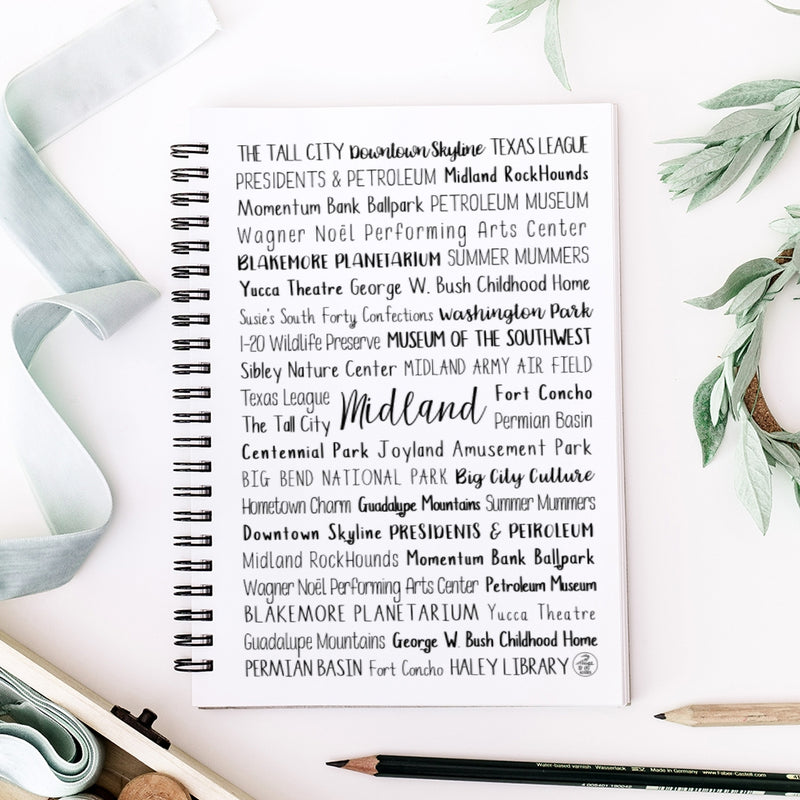 THE TALL CITY Downtown Skyline TEXAS LEAGUE
PRESIDENTS & PETROLEUM Midland RockHounds
Momentum Bank Ballpark PETROLEUM MUSEUM
Wagner Noël Performing Arts Center
BLAKEMORE PLANETARIUM SUMMER MUMMERS
Yucca Theatre George W. Bush Childhood Home
Susie's South Forty Confections Washington Park
I-20 Wildlife Preserve MUSEUM OF THE SOUTHWEST
Sibley Nature Center MIDLAND ARMY AIR FIELD
Texas League
The Tall City
Midland
Fort Concho
Permian Basin
Centennial Park Joyland Amusement Park
BIG BEND NATIONAL PARK Big City Culture
Hometown Charm Guadalupe Mountains Summer Mummers
Downtown Skyline PRESIDENTS & PETROLEUM
Midland RockHounds Momentum Bank Ballpark
Wagner Noël Performing Arts Center Petroleum Museum
BLAKEMORE PLANETARIUM Yucca Theatre
Guadalupe Mountains George W. Bush Childhood Home
PERMIAN BASIN Fort Concho HALEY LIBRARY
Water-based varnish Wasserlack Made in Germany www.Faber-Castell.com